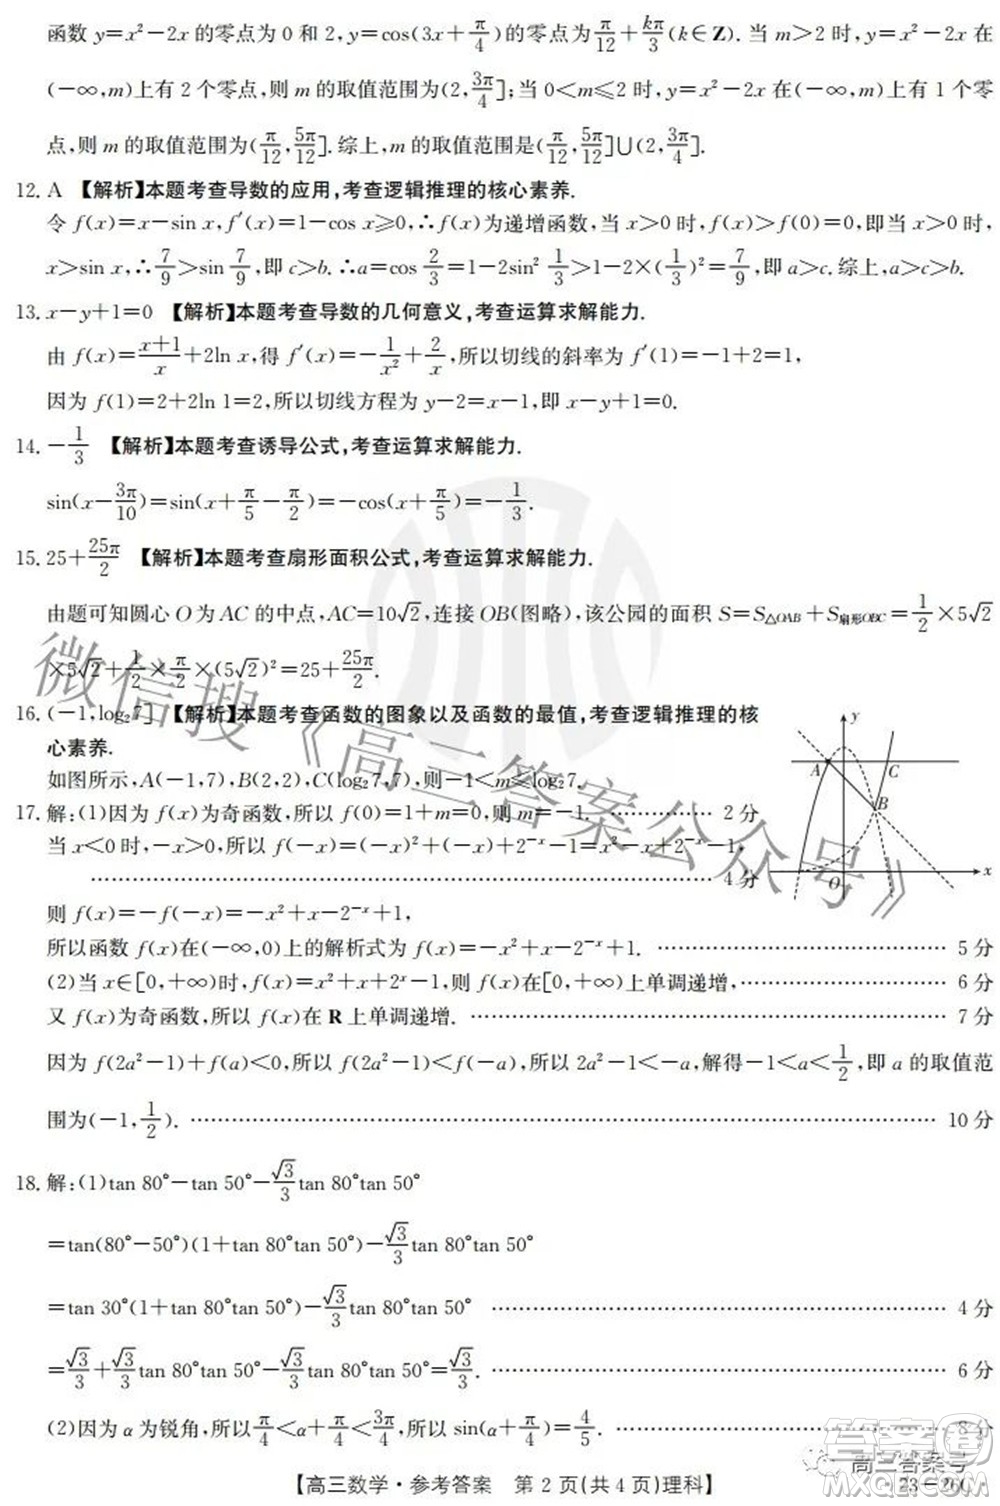 函数 y=x²-2x 的零点为 0 和 2,y=cos(3x+π/4)的零点为π/12+kπ/3(k∈Z).当 m>2 时,y=x²-2x 在
(-∞,m)上有 2 个零点,则 m 的取值范围为(2,3π/4];当 0<m≤2 时,y=x²-2x 在(-∞,m)上有 1 个零
点,则 m 的取值范围为(π/12,5π/12].综上,m 的取值范围是(π/12,5π/12]∪(2,3π/4].
12. A 【解析】本题考查导数的应用,考查逻辑推理的核心素养.
令 f(x)=x-sin x,f′(x)=1-cos x≥0,∴f(x)为递增函数,当 x>0 时,f(x)>f(0)=0,即当 x>0 时,
x>sin x,∴7/9>sin 7/9,即 c>b.∴a=cos 2/3=1-2sin² 1/3>1-2×(1/3)²=7/9,即 a>c.综上,a>c>b.
13. x-y+1=0 【解析】本题考查导数的几何意义,考查运算求解能力.
由 f(x)=(x+1)/x+2ln x,得 f′(x)=-1/x²+2/x,所以切线的斜率为 f′(1)=-1+2=1,
因为 f(1)=2+2ln 1=2,所以切线方程为 y-2=x-1,即 x-y+1=0.
14. -1/3 【解析】本题考查诱导公式,考查运算求解能力.
sin(x-3π/10)=sin(x+π/5-π/2)=-cos(x+π/5)=-1/3.
15. 25+25π/2 【解析】本题考查扇形面积公式,考查运算求解能力.
由题可知圆心 O 为 AC 的中点,AC=10√2,连接 OB(图略),该公园的面积 S=S△OAB+S扇形OBC=1/2×5√2
×5√2+1/2×π/2×(5√2)²=25+25π/2.
16. (-1,log₂7] 【解析】本题考查函数的图象以及函数的最值,考查逻辑推理的核
心素养.
如图所示,A(-1,7),B(2,2),C(log₂7,7),则-1<m≤log₂7.
y
A
C
B
O
x
17. 解:(1)因为 f(x)为奇函数,所以 f(0)=1+m=0,则 m=-1. …… 2 分
当 x<0 时,-x>0,所以 f(-x)=(-x)²+(-x)+2⁻ˣ-1=x²-x+2⁻ˣ-1,
…… 4 分
则 f(x)=-f(-x)=-x²+x-2⁻ˣ+1,
所以函数 f(x)在(-∞,0)上的解析式为 f(x)=-x²+x-2⁻ˣ+1. …… 5 分
(2)当 x∈[0,+∞)时,f(x)=x²+x+2ˣ-1,则 f(x)在[0,+∞)上单调递增,…… 6 分
又 f(x)为奇函数,所以 f(x)在 R 上单调递增. …… 7 分
因为 f(2a²-1)+f(a)<0,所以 f(2a²-1)<f(-a),所以 2a²-1<-a,解得-1<a<1/2,即 a 的取值范
围为(-1,1/2). …… 10 分
18. 解:(1)tan 80°-tan 50°-√3/3 tan 80°tan 50°
=tan(80°-50°)(1+tan 80°tan 50°)-√3/3 tan 80°tan 50°
=tan 30°(1+tan 80°tan 50°)-√3/3 tan 80°tan 50° …… 4 分
=√3/3+√3/3 tan 80°tan 50°-√3/3 tan 80°tan 50°=√3/3. …… 6 分
(2)因为 α 为锐角,所以π/4<α+π/4<3π/4,所以 sin(α+π/4)=4/5. …… 8 分
【高三数学·参考答案 第 2 页(共 4 页)理科】
23-26C
微信搜《高三答案公众号》
高三答案号
答案圈
MXQE.COM